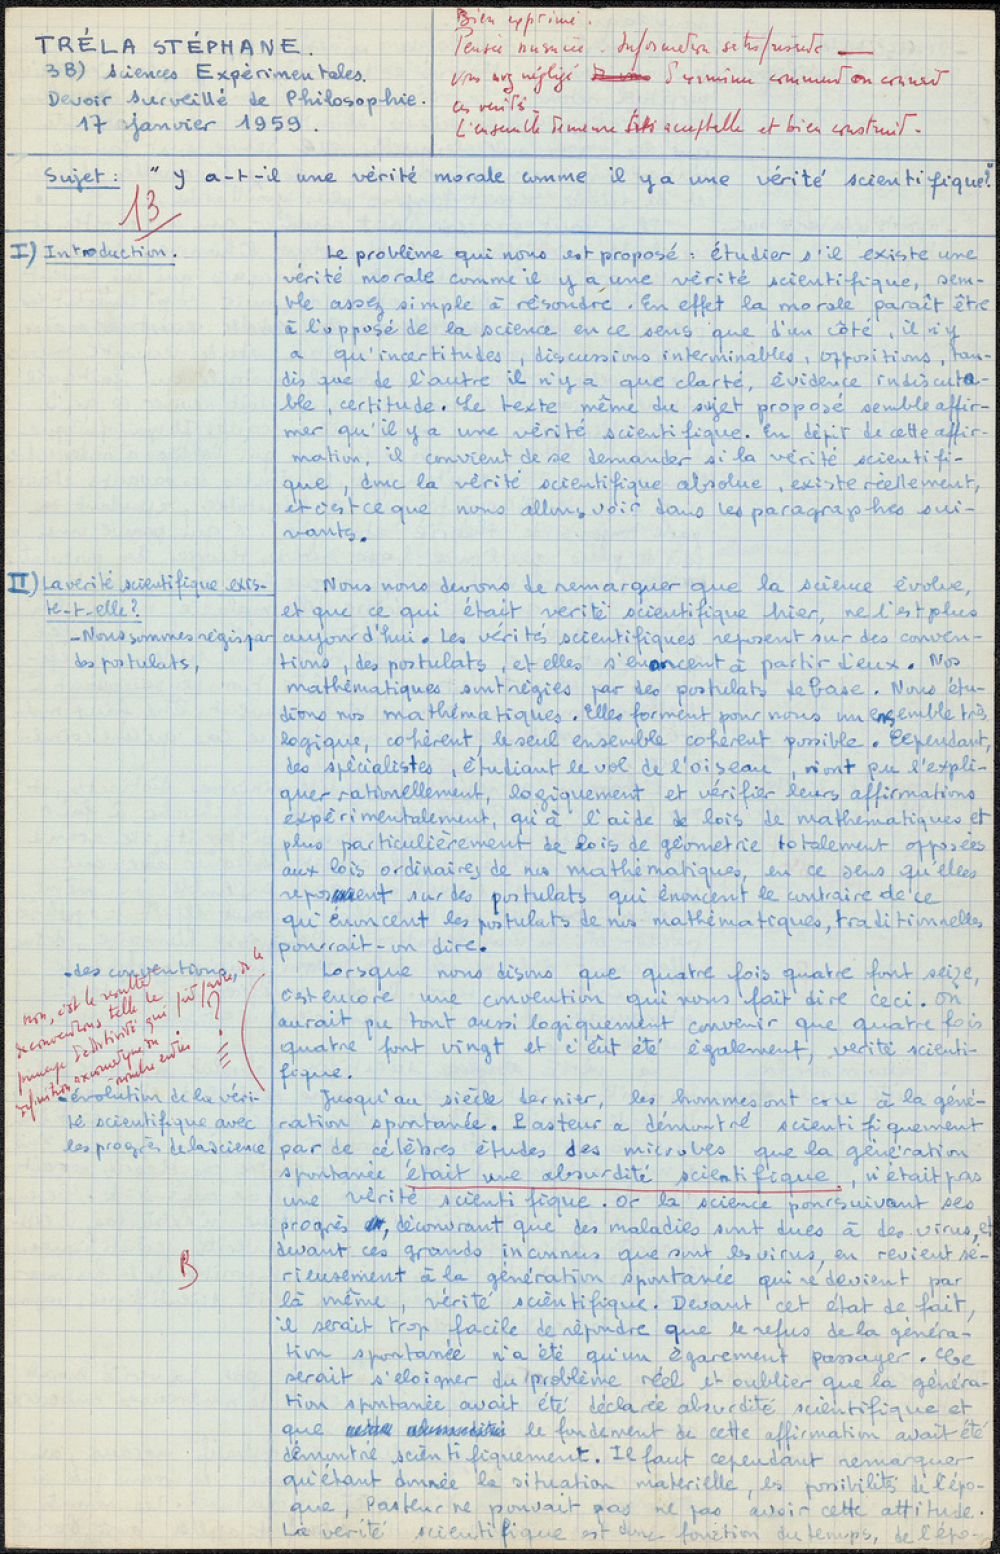 TRÉLA STÉPHANE.
3B) Sciences Expérimentales.
Devoir Surveillé de Philosophie.
17 janvier 1959.
Bien exprimé.
Pensée nuancée. Information satisfaisante —
vous avez négligé d'examiner comment on connait
ces vérités.
L'ensemble demeure acceptable et bien construit.
Sujet : " Y a-t-il une vérité morale comme il y a une vérité scientifique?"
13
I) Introduction.
Le problème qui nous est proposé : étudier s'il existe une
vérité morale comme il y a une vérité scientifique, sem-
ble assez simple à résoudre. En effet la morale paraît être
à l'opposé de la science en ce sens que d'un côté, il n'y
a qu'incertitudes, discussions interminables, oppositions, tan-
dis que de l'autre il n'y a que clarté, évidence indiscuta-
ble, certitude. Le texte même du sujet proposé semble affir-
mer qu'il y a une vérité scientifique. En dépit de cette affir-
mation, il convient de se demander si la vérité scientifi-
que, donc la vérité scientifique absolue, existe réellement,
et c'est ce que nous allons voir dans les paragraphes sui-
vants.
II) La vérité scientifique exis-
te-t-elle?
- Nous sommes régis par
des postulats,
Nous nous devons de remarquer que la science évolue,
et que ce qui était vérité scientifique hier, ne l'est plus
aujourd'hui. Les vérités scientifiques reposent sur des conven-
tions, des postulats, et elles s'énoncent à partir d'eux. Nos
mathématiques sont régies par des postulats de base. Nous étu-
dions nos mathématiques. Elles forment pour nous un ensemble très
logique, cohérent, le seul ensemble cohérent possible. Cependant,
des spécialistes, étudiant le vol de l'oiseau, n'ont pu l'expli-
quer rationellement, logiquement et vérifier leurs affirmations
expérimentalement, qu'à l'aide de lois de mathématiques et
plus particulièrement de lois de géométrie totalement opposées
aux lois ordinaires de nos mathématiques, en ce sens qu'elles
reposent sur des postulats qui énoncent le contraire de ce
qu'énoncent les postulats de nos mathématiques, traditionnelles
pourrait-on dire.
- des conventions,
non, c'est le résultat
de conventions telle le
principe d'additivité qui fait partie, de la
définition axiomatique du
nombre entier
Lorsque nous disons que quatre fois quatre font seize,
c'est encore une convention qui nous fait dire ceci. On
aurait pu tout aussi logiquement convenir que quatre fois
quatre font vingt et c'eût été également, vérité scienti-
fique.
- évolution de la véri-
té scientifique avec
les progrès de la science
Jusqu'au siècle dernier, les hommes ont cru à la géné-
ration spontanée. Pasteur a démontré scientifiquement
par de célèbres études des microbes que la génération
spontanée était une absurdité scientifique, n'était pas
une vérité scientifique. Or la science poursuivant ses
progrès, découvrant que des maladies sont dues à des virus, et
devant ces grands inconnus que sont les virus, en revient sé-
rieusement à la génération spontanée qui redevient par
là même, vérité scientifique. Devant cet état de fait,
il serait trop facile de répondre que le refus de la généra-
tion spontanée n'a été qu'un égarement passager. Ce
serait s'éloigner du problème réel et oublier que la généra-
tion spontanée avait été déclarée absurdité scientifique et
que le fondement de cette affirmation avait été
démontré scientifiquement. Il faut cependant remarquer
qu'étant donnée la situation matérielle, les possibilités de l'épo-
que, Pasteur ne pouvait pas ne pas avoir cette attitude.
La vérité scientifique est donc fonction du temps, de l'épo-
B